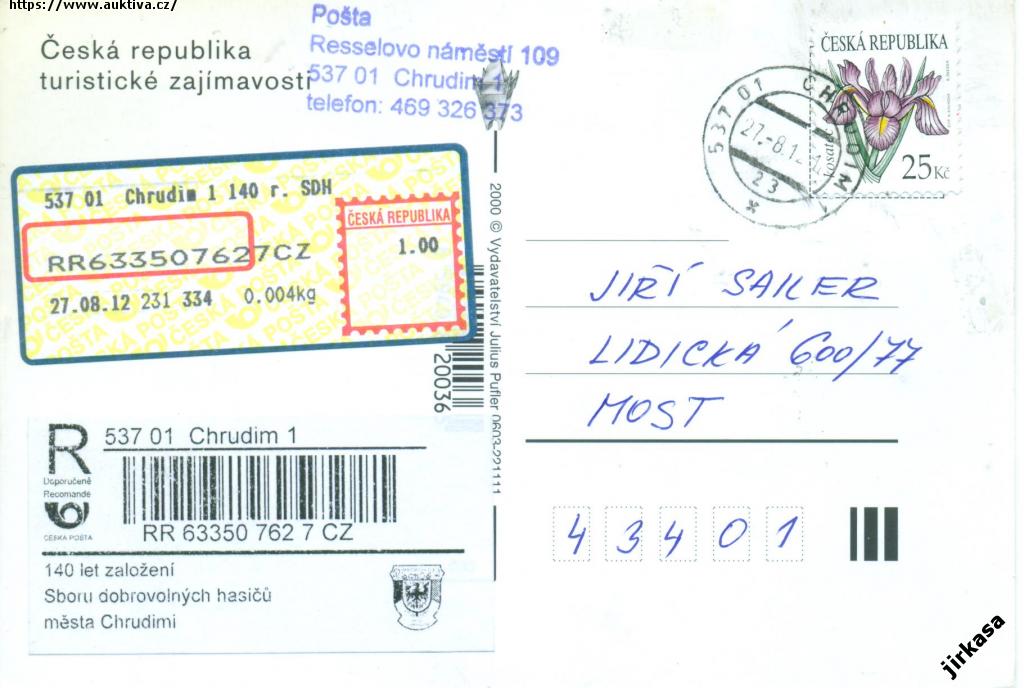 https://www.auktiva.cz/
Česká republika
turistické zajímavosti
Pošta
Resselovo náměstí 109
537 01 Chrudim 1
telefon: 469 326 373
537 01 CHRUDIM 1
27.-8.12
23
ČESKÁ REPUBLIKA
kosatec
25 Kč
537 01 Chrudim 1 140 r. SDH
RR633507627CZ
27.08.12 231 334 0.004kg
ČESKÁ REPUBLIKA
1.00
2000 © Vydavatelství Julius Pufler 0603-221111
20036
JIŘÍ SAILER
LIDICKÁ 600/77
MOST
43401
R
Doporučeně
Recomandé
ČESKÁ POŠTA
537 01 Chrudim 1
RR 63350 762 7 CZ
140 let založení
Sboru dobrovolných hasičů
města Chrudimi
jirkasa